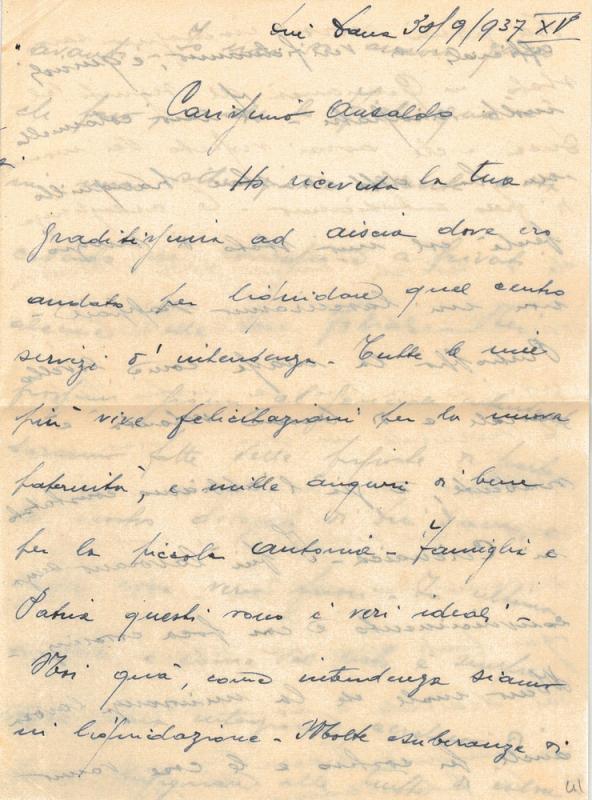 Dire Daua 30/9/937 XV
Carissimo Ansaldo
Ho ricevuta la tua
graditissima ad aiscia dove ero
andato per liquidare quel centro
servizi d'intendenza - Tutte le mie
più vive felicitazioni per la nuova
paternità, e mille auguri di bene
per la piccola Antonia - Famiglia e
Patria questi sono i veri ideali -
Noi quà, come intendenza siamo
in liquidazione - Molte esuberanze di
41